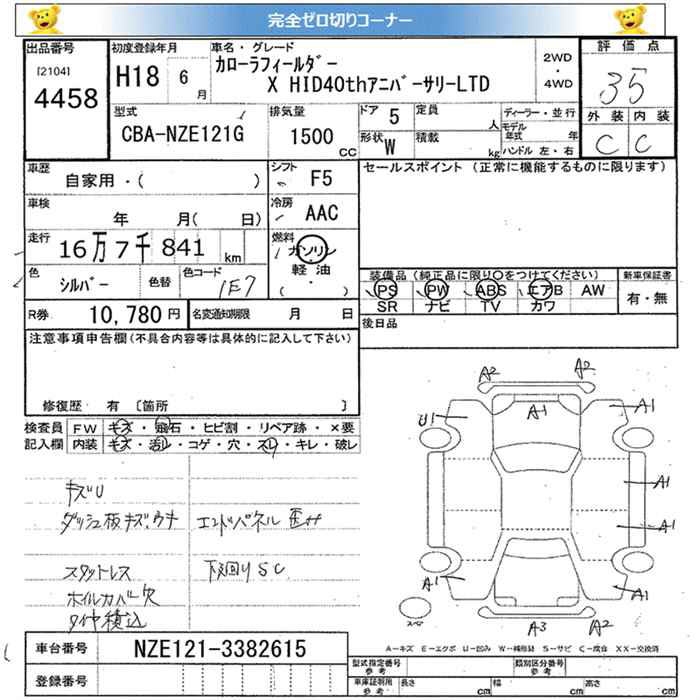 完全ゼロ切りコーナー
出品番号
[2104]
4458
初度登録年月
H18 6 月
車名・グレード
カローラフィールダー
X HID40thアニバーサリーLTD
2WD
・
4WD
評価点
35
外装 内装
C C
型式
CBA-NZE121G
排気量
1500 CC
ドア 5
形状 W
定員 人
積載 kg
ディーラー・並行
モデル年式 年
ハンドル 左・右
車歴
自家用・( )
シフト F5
車検
年 月( 日)
冷房 AAC
走行
16万7千841 km
燃料
ガソリン
・
軽油
( )
色
シルバー 色替
色コード
1E7
セールスポイント (正常に機能するものに限ります)
装備品(純正品に限り○をつけてください)
PS PW ABS エアB AW
SR ナビ TV カワ
新車保証書
有・無
R券 10,780 円
名変通知期限 月 日
後日品
注意事項申告欄(不具合内容等は具体的に記入して下さい)
修復歴 有 〔箇所 〕
検査員 FW キズ・飛石・ヒビ割・リペア跡・×要
記入欄 内装 キズ・汚レ・コゲ・穴・スレ・キレ・破レ
キズU
ダッシュ板キズ、ウキ
エンドパネル歪み
スタットレス
下廻りSC
ホイルカバー欠
タイヤ積込
A2 A2
U1 A1 A1
A1
A1
A1 A1
A3 A2
A-キズ E-エクボ U-凹み W-補修跡 S-サビ C-腐食 XX-交換済
車台番号 NZE121-3382615
登録番号
型式指定番号
参考
類別区分番号
参考
車庫証明用
参考
長さ cm
幅 cm
高さ cm